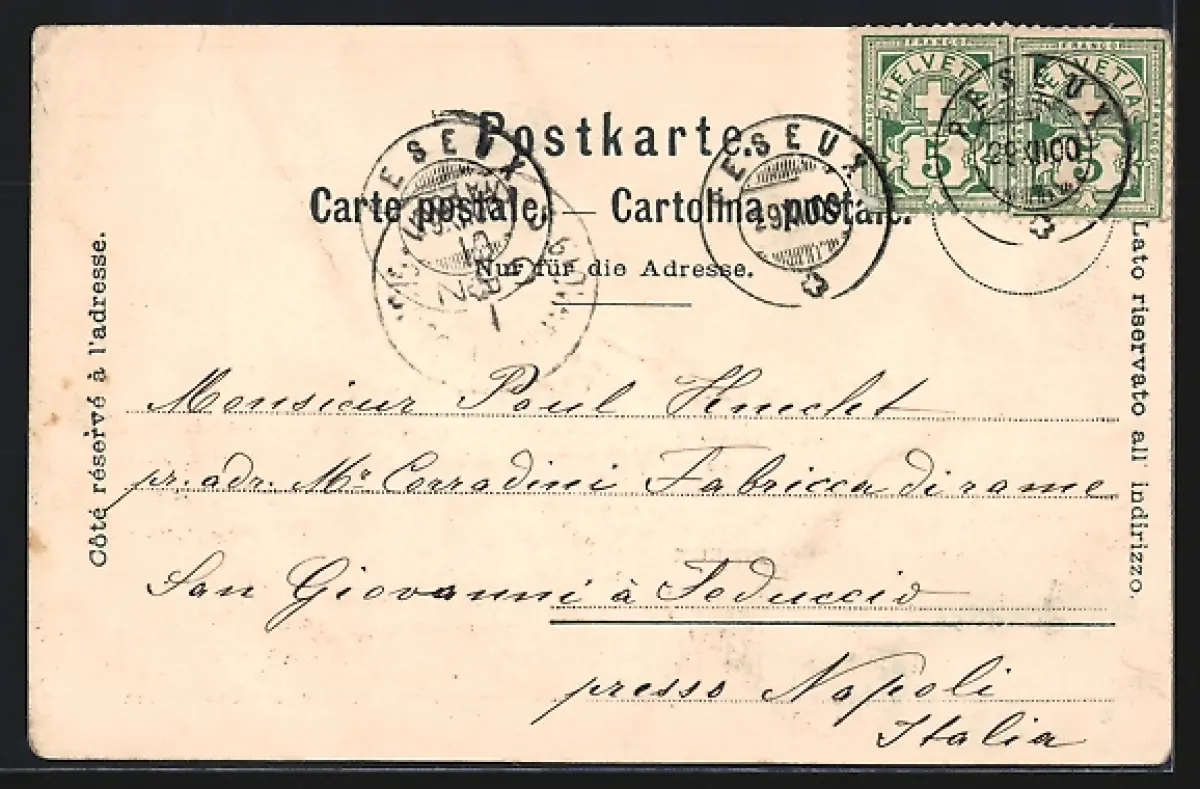 FRANCO FRANCO
HELVETIA HELVETIA
5 5
PESEUX
29.XII.00
Postkarte.
ESEUX
ESEUX
29.XII.00
Carte postale. — Cartolina postale.
Nur für die Adresse.
Côté réservé à l'adresse.
Lato riservato all' indirizzo
Monsieur Paul
pr. adr. Mr Corradini Fabricca di rame
San Giovanni à Feduccio
presso Napoli
Italia